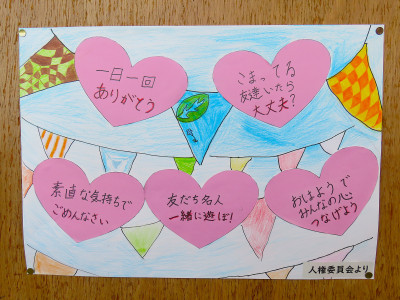 一日一回
ありがとう
こまってる
友達いたら
大丈夫?
素直な気持ちで
ごめんなさい
友だち名人
一緒に遊ぼ!
おはようで
みんなの心
つなげよう
人権委員会より